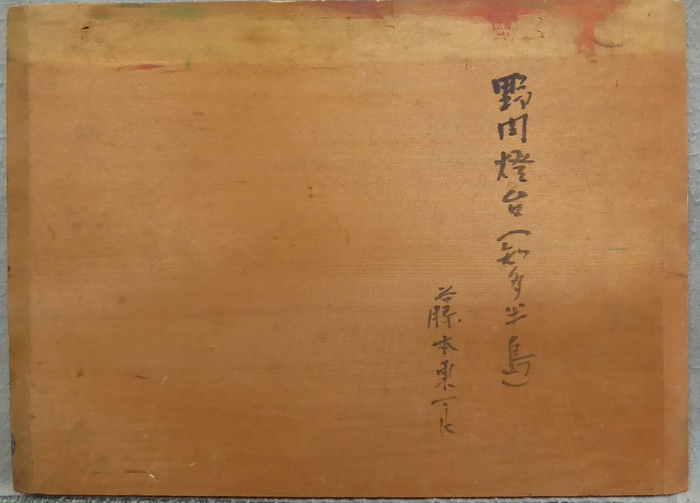 野間燈台(知多半島)
藤本東一良